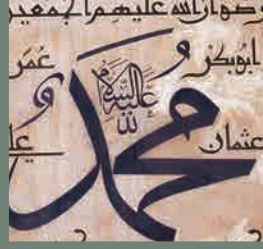 رضوان الله عليهم اجمعين
ابوبكر عمر
عليه السلام
محمد
عثمان علي